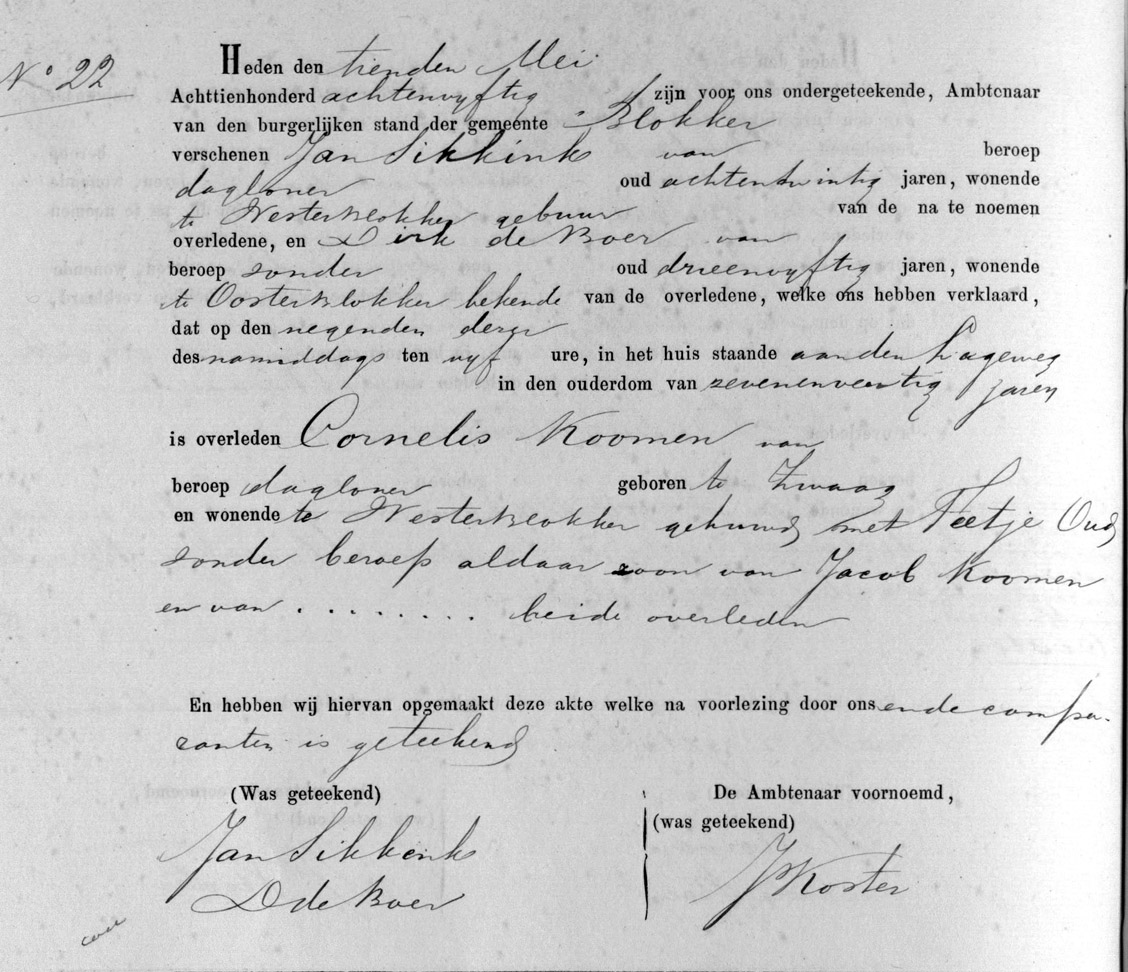 No 22
Heden den tienden Mei
Achttienhonderd achtenvyftig zijn voor ons ondergeteekende, Ambtenaar
van den burgerlijken stand der gemeente Blokker
verschenen Jan Sikkink van beroep
dagloner oud achtentwintig jaren, wonende
te Westerblokker gebuur van de na te noemen
overledene, en Dirk de Boer van
beroep zonder oud drieenvyftig jaren, wonende
te Oosterblokker bekende van de overledene, welke ons hebben verklaard,
dat op den negenden dezer
des namiddags ten vyf ure, in het huis staande aan den Hageweg
in den ouderdom van zevenenveertig jaren
is overleden Cornelis Koomen van
beroep dagloner geboren te Zwaag
en wonende te Westerblokker gehuwd met Teetje Oud
zonder beroep aldaar zoon van Jacob Koomen
en van . . . . . . . . beide overleden
En hebben wij hiervan opgemaakt deze akte welke na voorlezing door ons en de compa-
ranten is geteekend
(Was geteekend) De Ambtenaar voornoemd,
(was geteekend)
Jan Sikkenk
D de Boer
J Koster